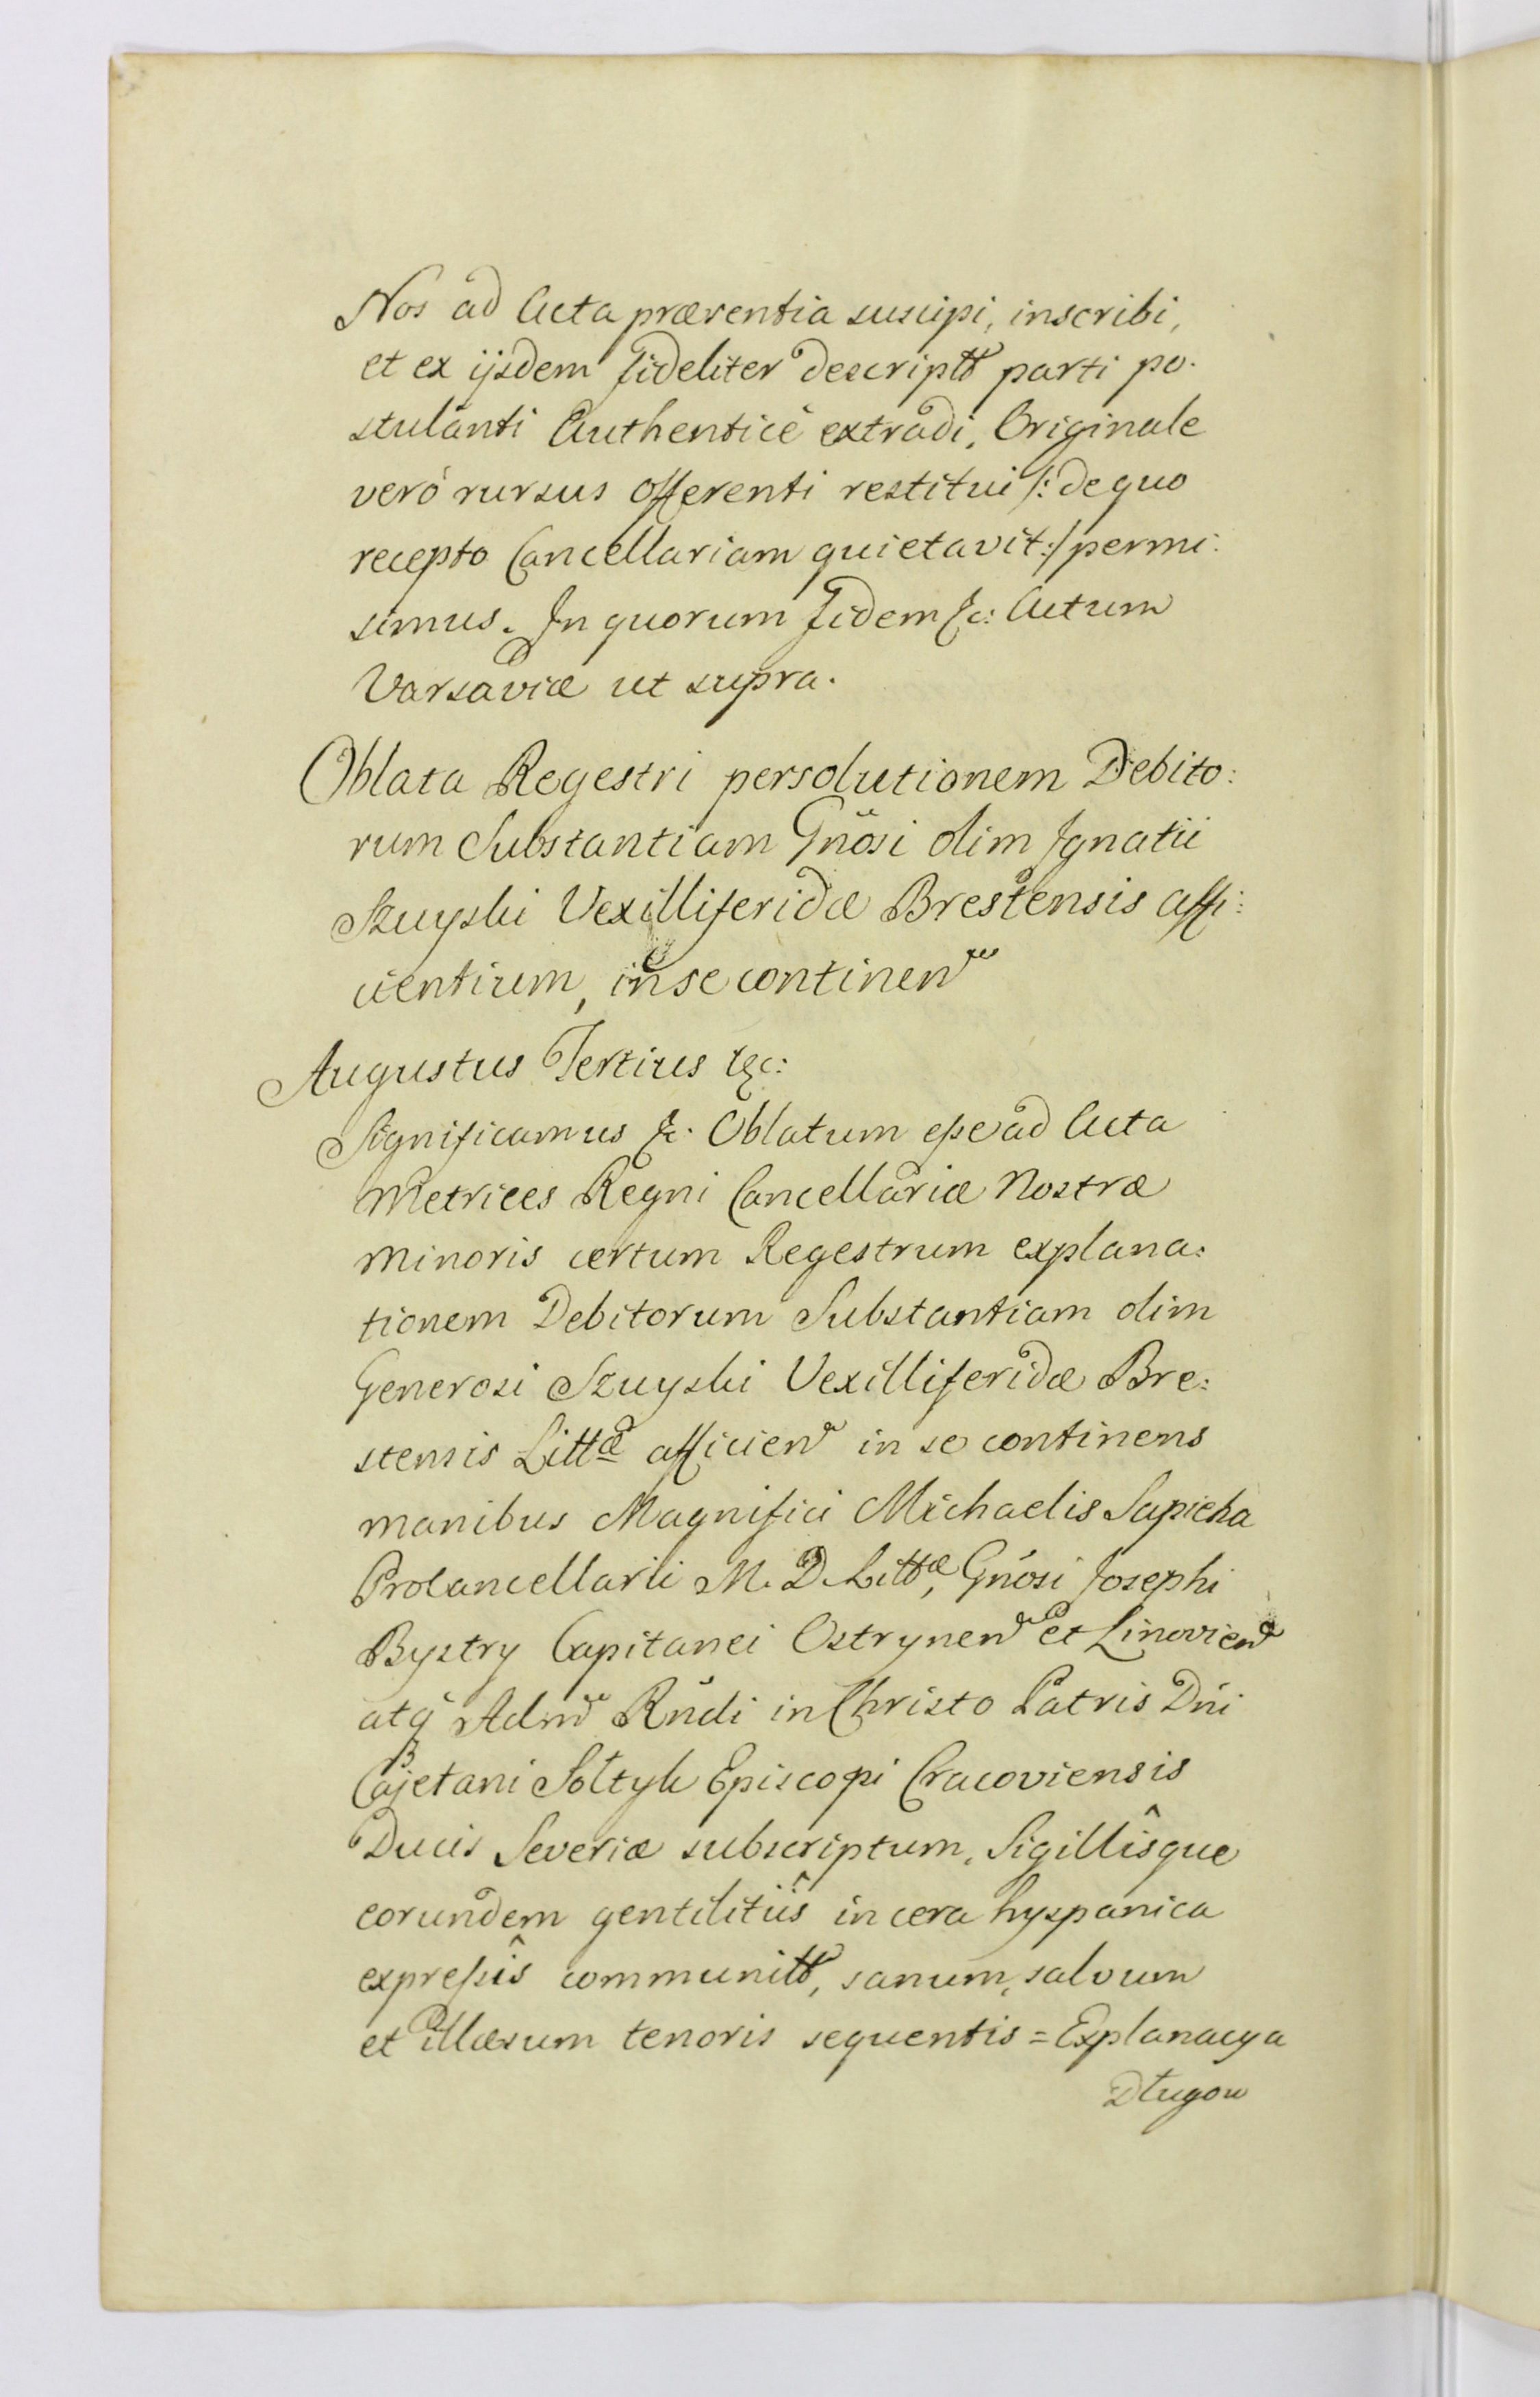 Nos ad Acta præsentia suscipi, inscribi,
et ex ijsdem fideliter descriptū parti po-
stulanti Authenticè extradi, Originale
verò rursus offerenti restitui /: de quo
recepto Cancellariam quietavit :/ permi:
simus. In quorum fidem &c: Actum
Varsaviæ ut supra.
Oblata Regestri persolutionem Debito:
rum Substantiam Gñosi olim Ignatii
Szuyski Vexilliferidæ Brestensis affi:
cientium, in se continen
Augustus Tertius &c:
Significamus &c. Oblatum esse ad Acta
Metrices Regni Cancellariæ Nostræ
Minoris certum Regestrum explana:
tionem Debitorum Substantiam olim
Generosi Szuyski Vexilliferidæ Bre:
stensis Littæ afficien in se continens
manibus Magnifici Michaelis Sapieha
Procancellarii M. D. Littæ, Gñosi Josephi
Bystry Capitanei Ostrynen et Linovien
atq̃ Adm Rñdi in Christo Patris Dñi
Cajetani Sołtyk Episcopi Cracoviensis
Ducis Severiæ subscriptum, Sigillîsque
eorundem gentilitiîs in cera hyspanica
expressîs communitū, sanum, salvum
et illæsum tenoris sequentis = Explanacya
Długow